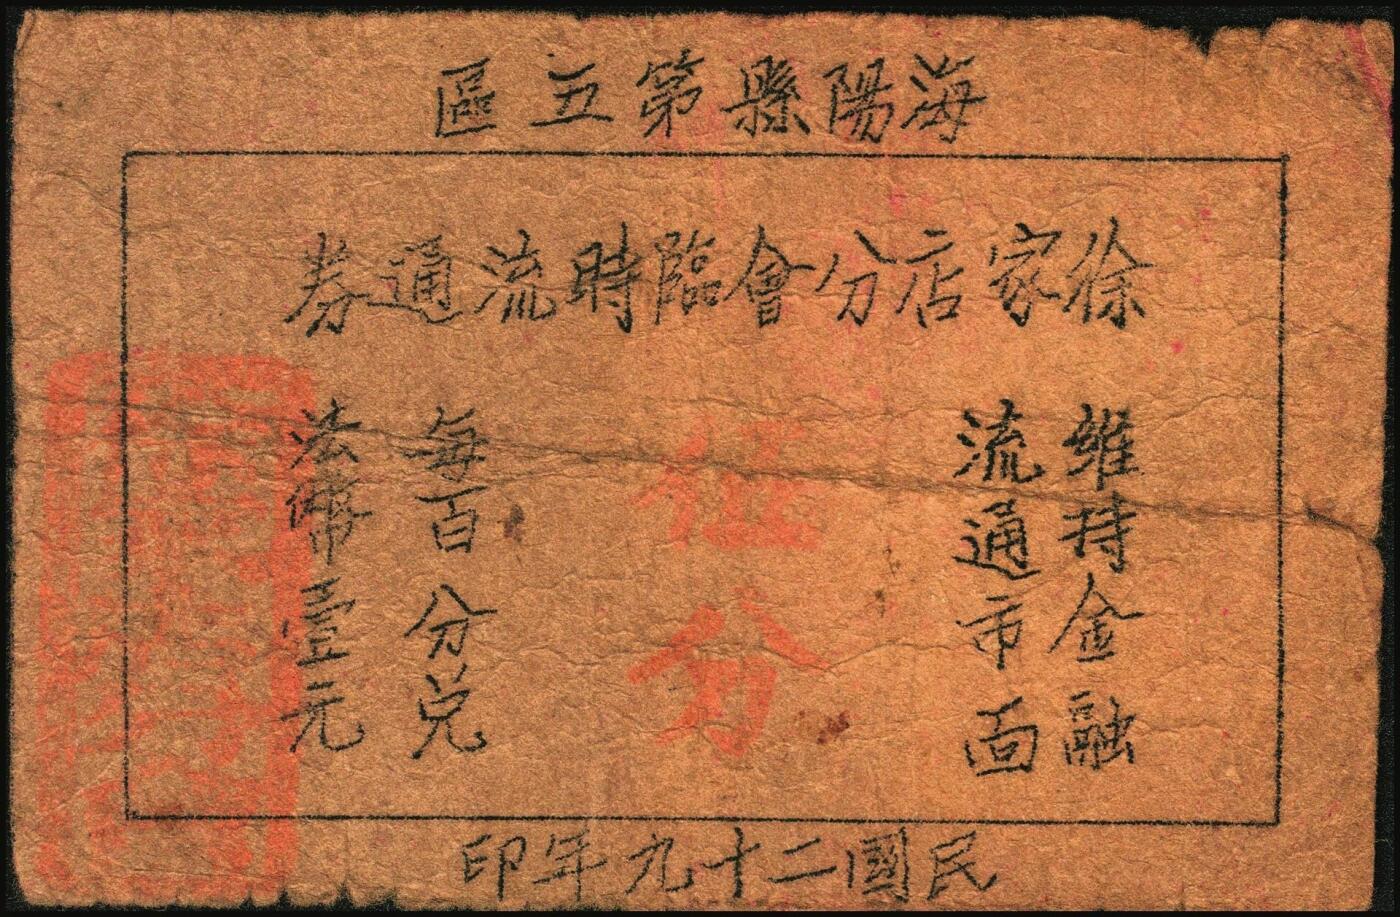 海陽縣第五區
徐家店分會臨時流通券
維持金融
流通市面
伍分
每百分兑
法幣壹元
民國二十九年印